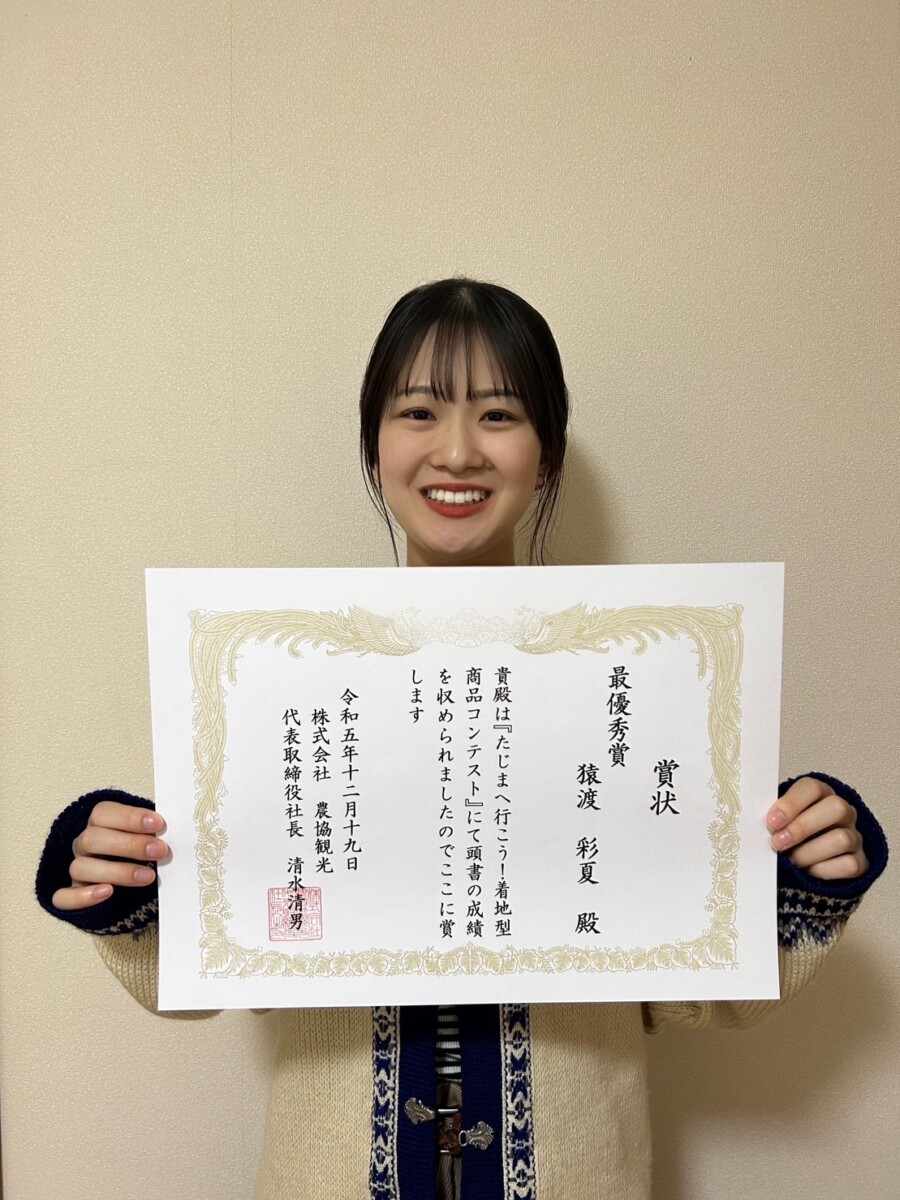 賞状
最優秀賞
猿渡 彩夏 殿
貴殿は『たじまへ行こう!着地型
商品コンテスト』にて頭書の成績
を収められましたのでここに賞
します
令和五年十二月十九日
株式会社 農協観光
代表取締役社長 清水清男